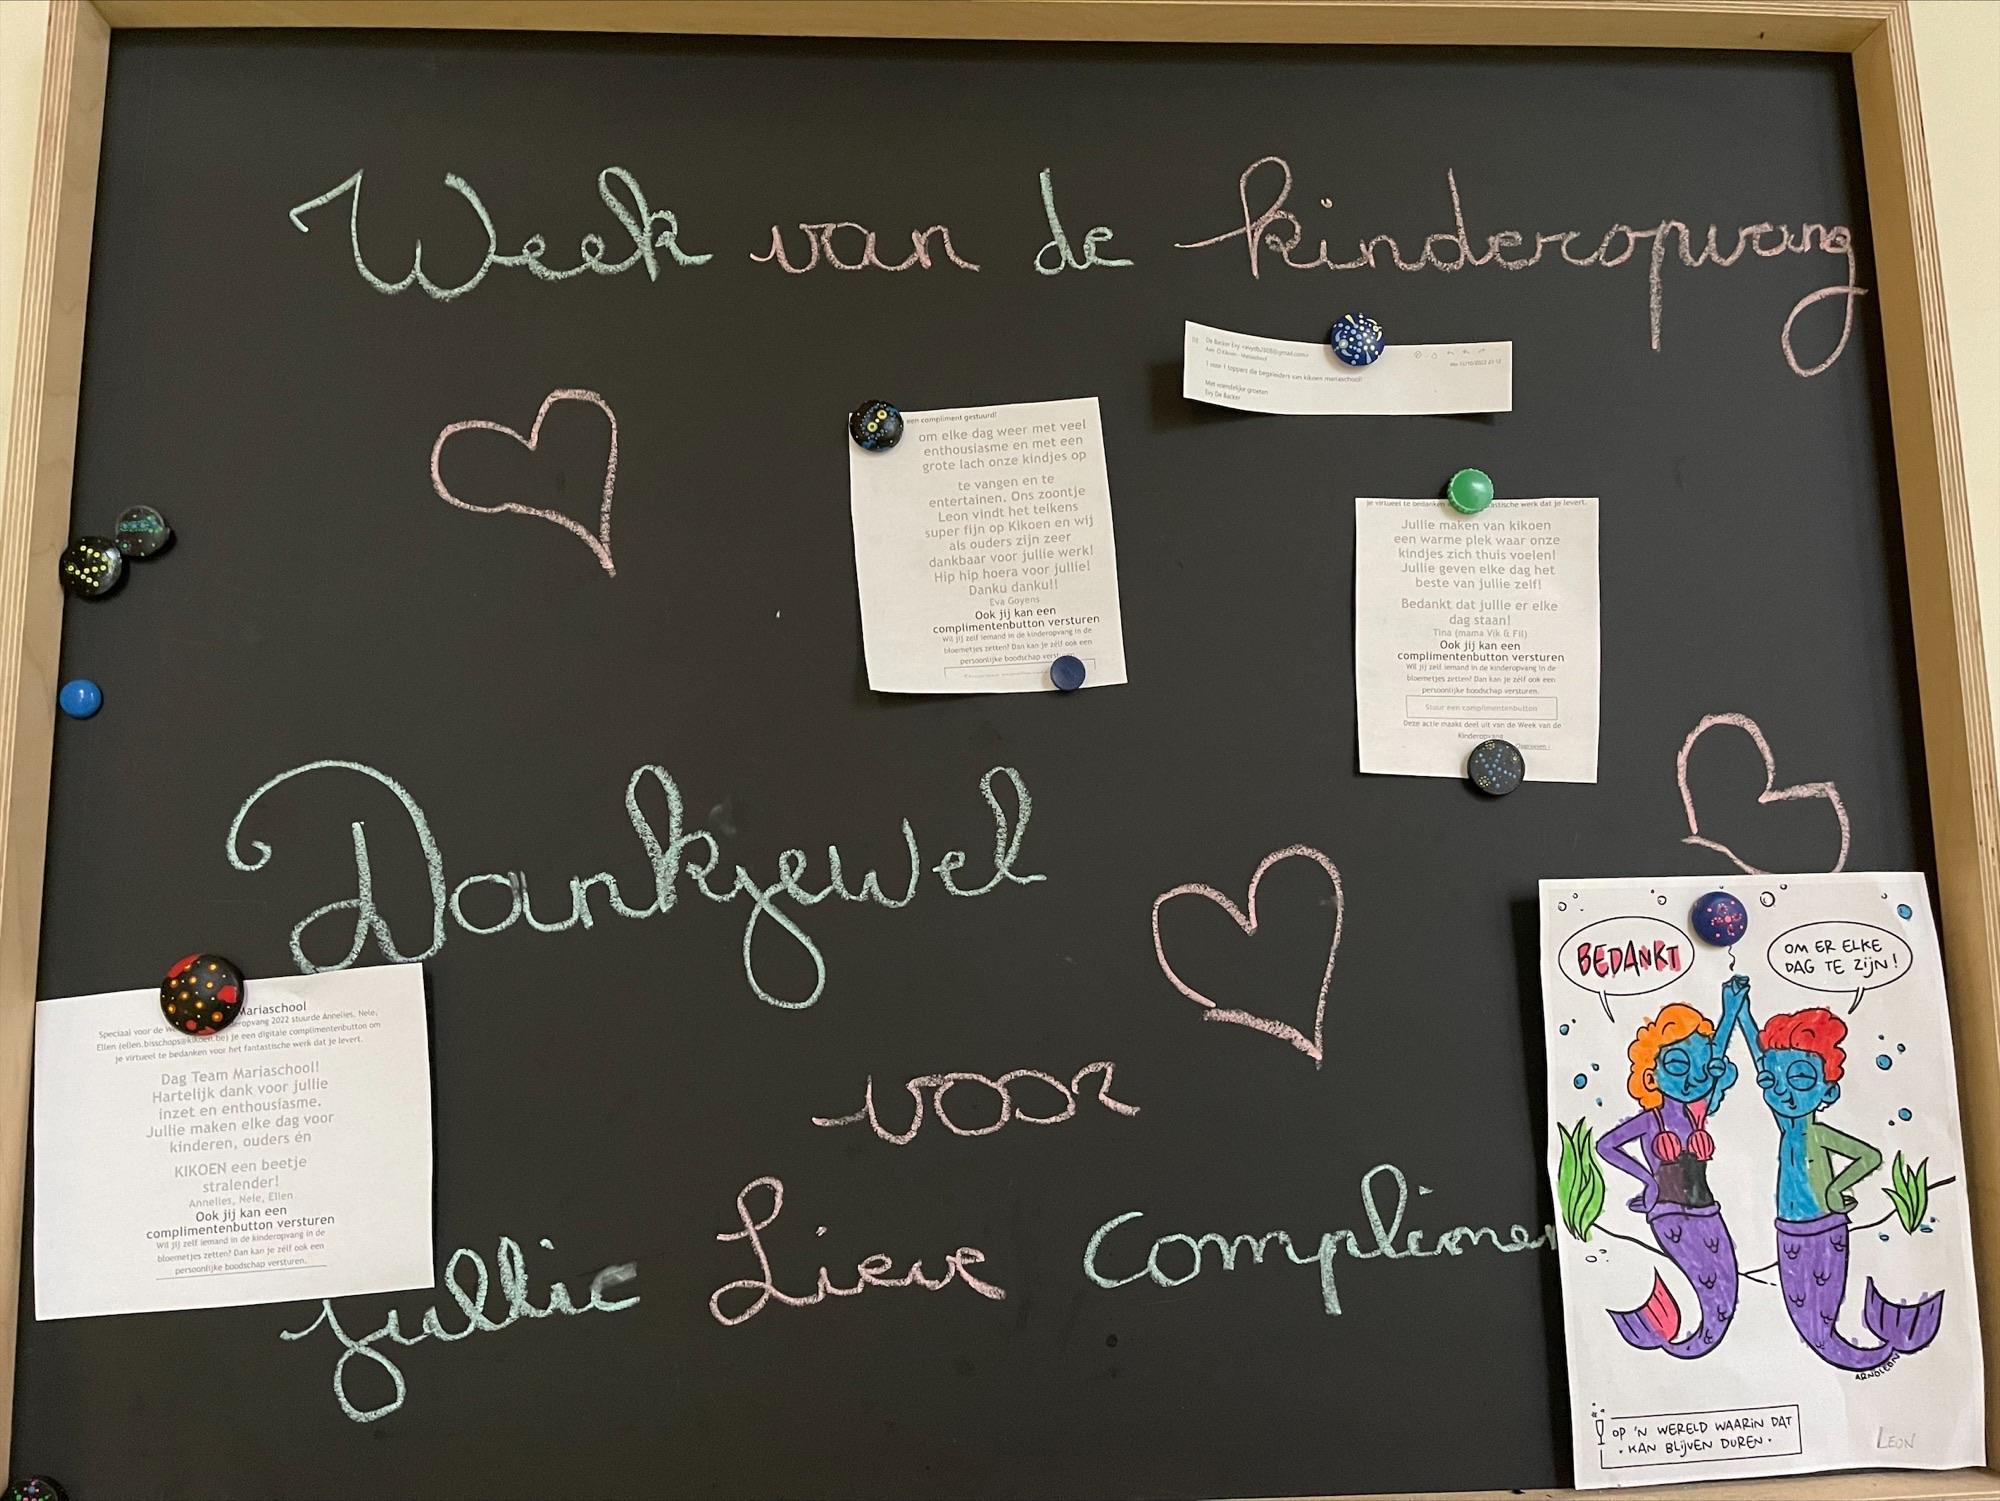 Week van de kinderopvang
De Backer Evy
1 voor 1 toppers die begeleiders van kikoen mariaschool!
Met vriendelijke groeten
Evy De Backer
een compliment gestuurd!
om elke dag weer met veel
enthousiasme en met een
grote lach onze kindjes op
te vangen en te
entertainen. Ons zoontje
Leon vindt het telkens
super fijn op Kikoen en wij
als ouders zijn zeer
dankbaar voor jullie werk!
Hip hip hoera voor jullie!
Danku danku!!
Eva Goyens
Ook jij kan een
complimentenbutton versturen
Wil jij zelf iemand in de kinderopvang in de
bloemetjes zetten? Dan kan je zélf ook een
persoonlijke boodschap
je virtueel te bedanken fantastische werk dat je levert.
Jullie maken van kikoen
een warme plek waar onze
kindjes zich thuis voelen!
Jullie geven elke dag het
beste van jullie zelf!
Bedankt dat jullie er elke
dag staan!
Tina (mama Vik & Fil)
Ook jij kan een
complimentenbutton versturen
Wil jij zelf iemand in de kinderopvang in de
bloemetjes zetten? Dan kan je zélf ook een
persoonlijke boodschap versturen.
Stuur een complimentenbutton
Deze actie maakt deel uit van de Week van de
Kinderopvang
Dankjewel
voor
jullie Lieve Complimen
Mariaschool
Speciaal voor de 2022 stuurde Annelies, Nele,
Ellen (ellen.bisschops@kikoen.be) je een digitale complimentenbutton om
je virtueel te bedanken voor het fantastische werk dat je levert.
Dag Team Mariaschool!
Hartelijk dank voor jullie
inzet en enthousiasme.
Jullie maken elke dag voor
kinderen, ouders én
KIKOEN een beetje
stralender!
Annelies, Nele, Ellen
Ook jij kan een
complimentenbutton versturen
Wil jij zelf iemand in de kinderopvang in de
bloemetjes zetten? Dan kan je zélf ook een
persoonlijke boodschap versturen.
BEDANKT
OM ER ELKE
DAG TE ZIJN!
ARNOLEON
OP 'N WERELD WAARIN DAT
KAN BLIJVEN DUREN.
LEON